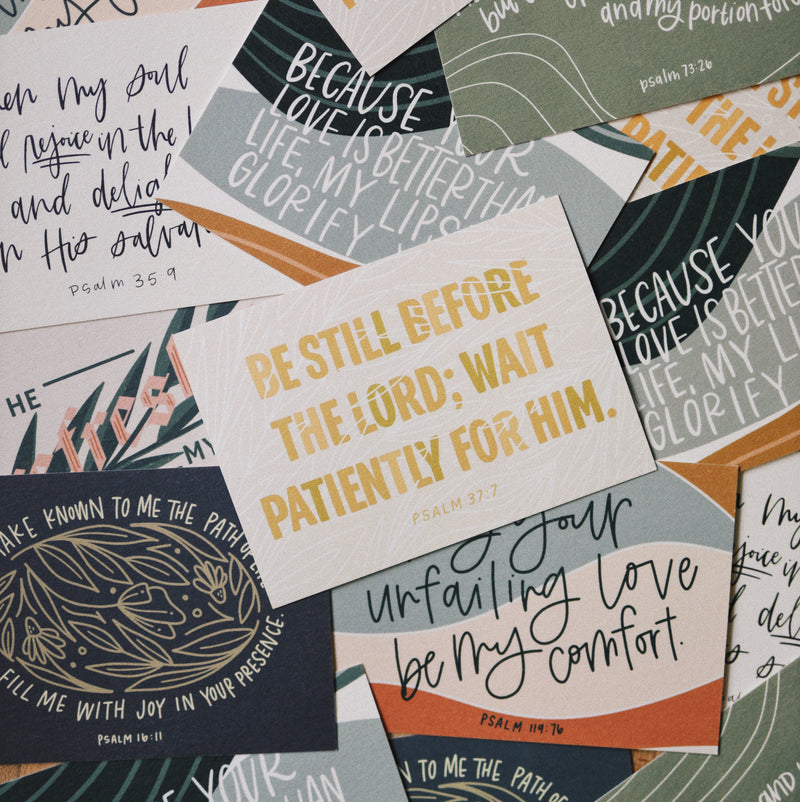 and my portion for
psalm 73:26
my soul
rejoice in the
and
in His
psalm 35:9
BECAUSE
LOVE IS BETTER THAN
LIFE, MY LIPS
GLORIFY
THE
BE STILL BEFORE
THE LORD; WAIT
PATIENTLY FOR HIM.
PSALM 37:7
BECAUSE
LOVE IS BETTER
LIFE, MY
GLORIFY
HE
MY
KNOWN TO ME THE PATH OF
FILL ME WITH JOY IN YOUR PRESENCE.
PSALM 16:11
your
unfailing love
be my comfort.
PSALM 119:76
my
in
YOUR
TO ME THE PATH OF
and